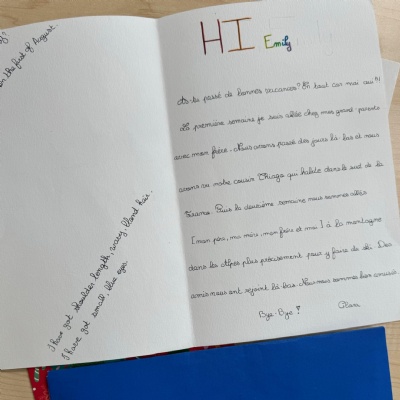 y?
on the first of August.
I have got shoulder length, wavy, blond hair.
I have got small, blue eyes.
HI Emily
As-tu passé de bonnes vacances? En tout cas moi oui!!
La première semaine je suis allée chez mes grand-parents
avec mon frère. Nous avons passé des jours là-bas et nous
avons vu notre cousin Thiago qui habite dans le sud de la
France. Puis la deuxième semaine nous sommes allés
(mon père, ma mère, mon frère et moi) à la montagne
dans les Alpes plus précisément pour y faire du ski. Des
amis nous ont rejoint là-bas. Nous nous sommes bien amusés
Bye-Bye! Clara